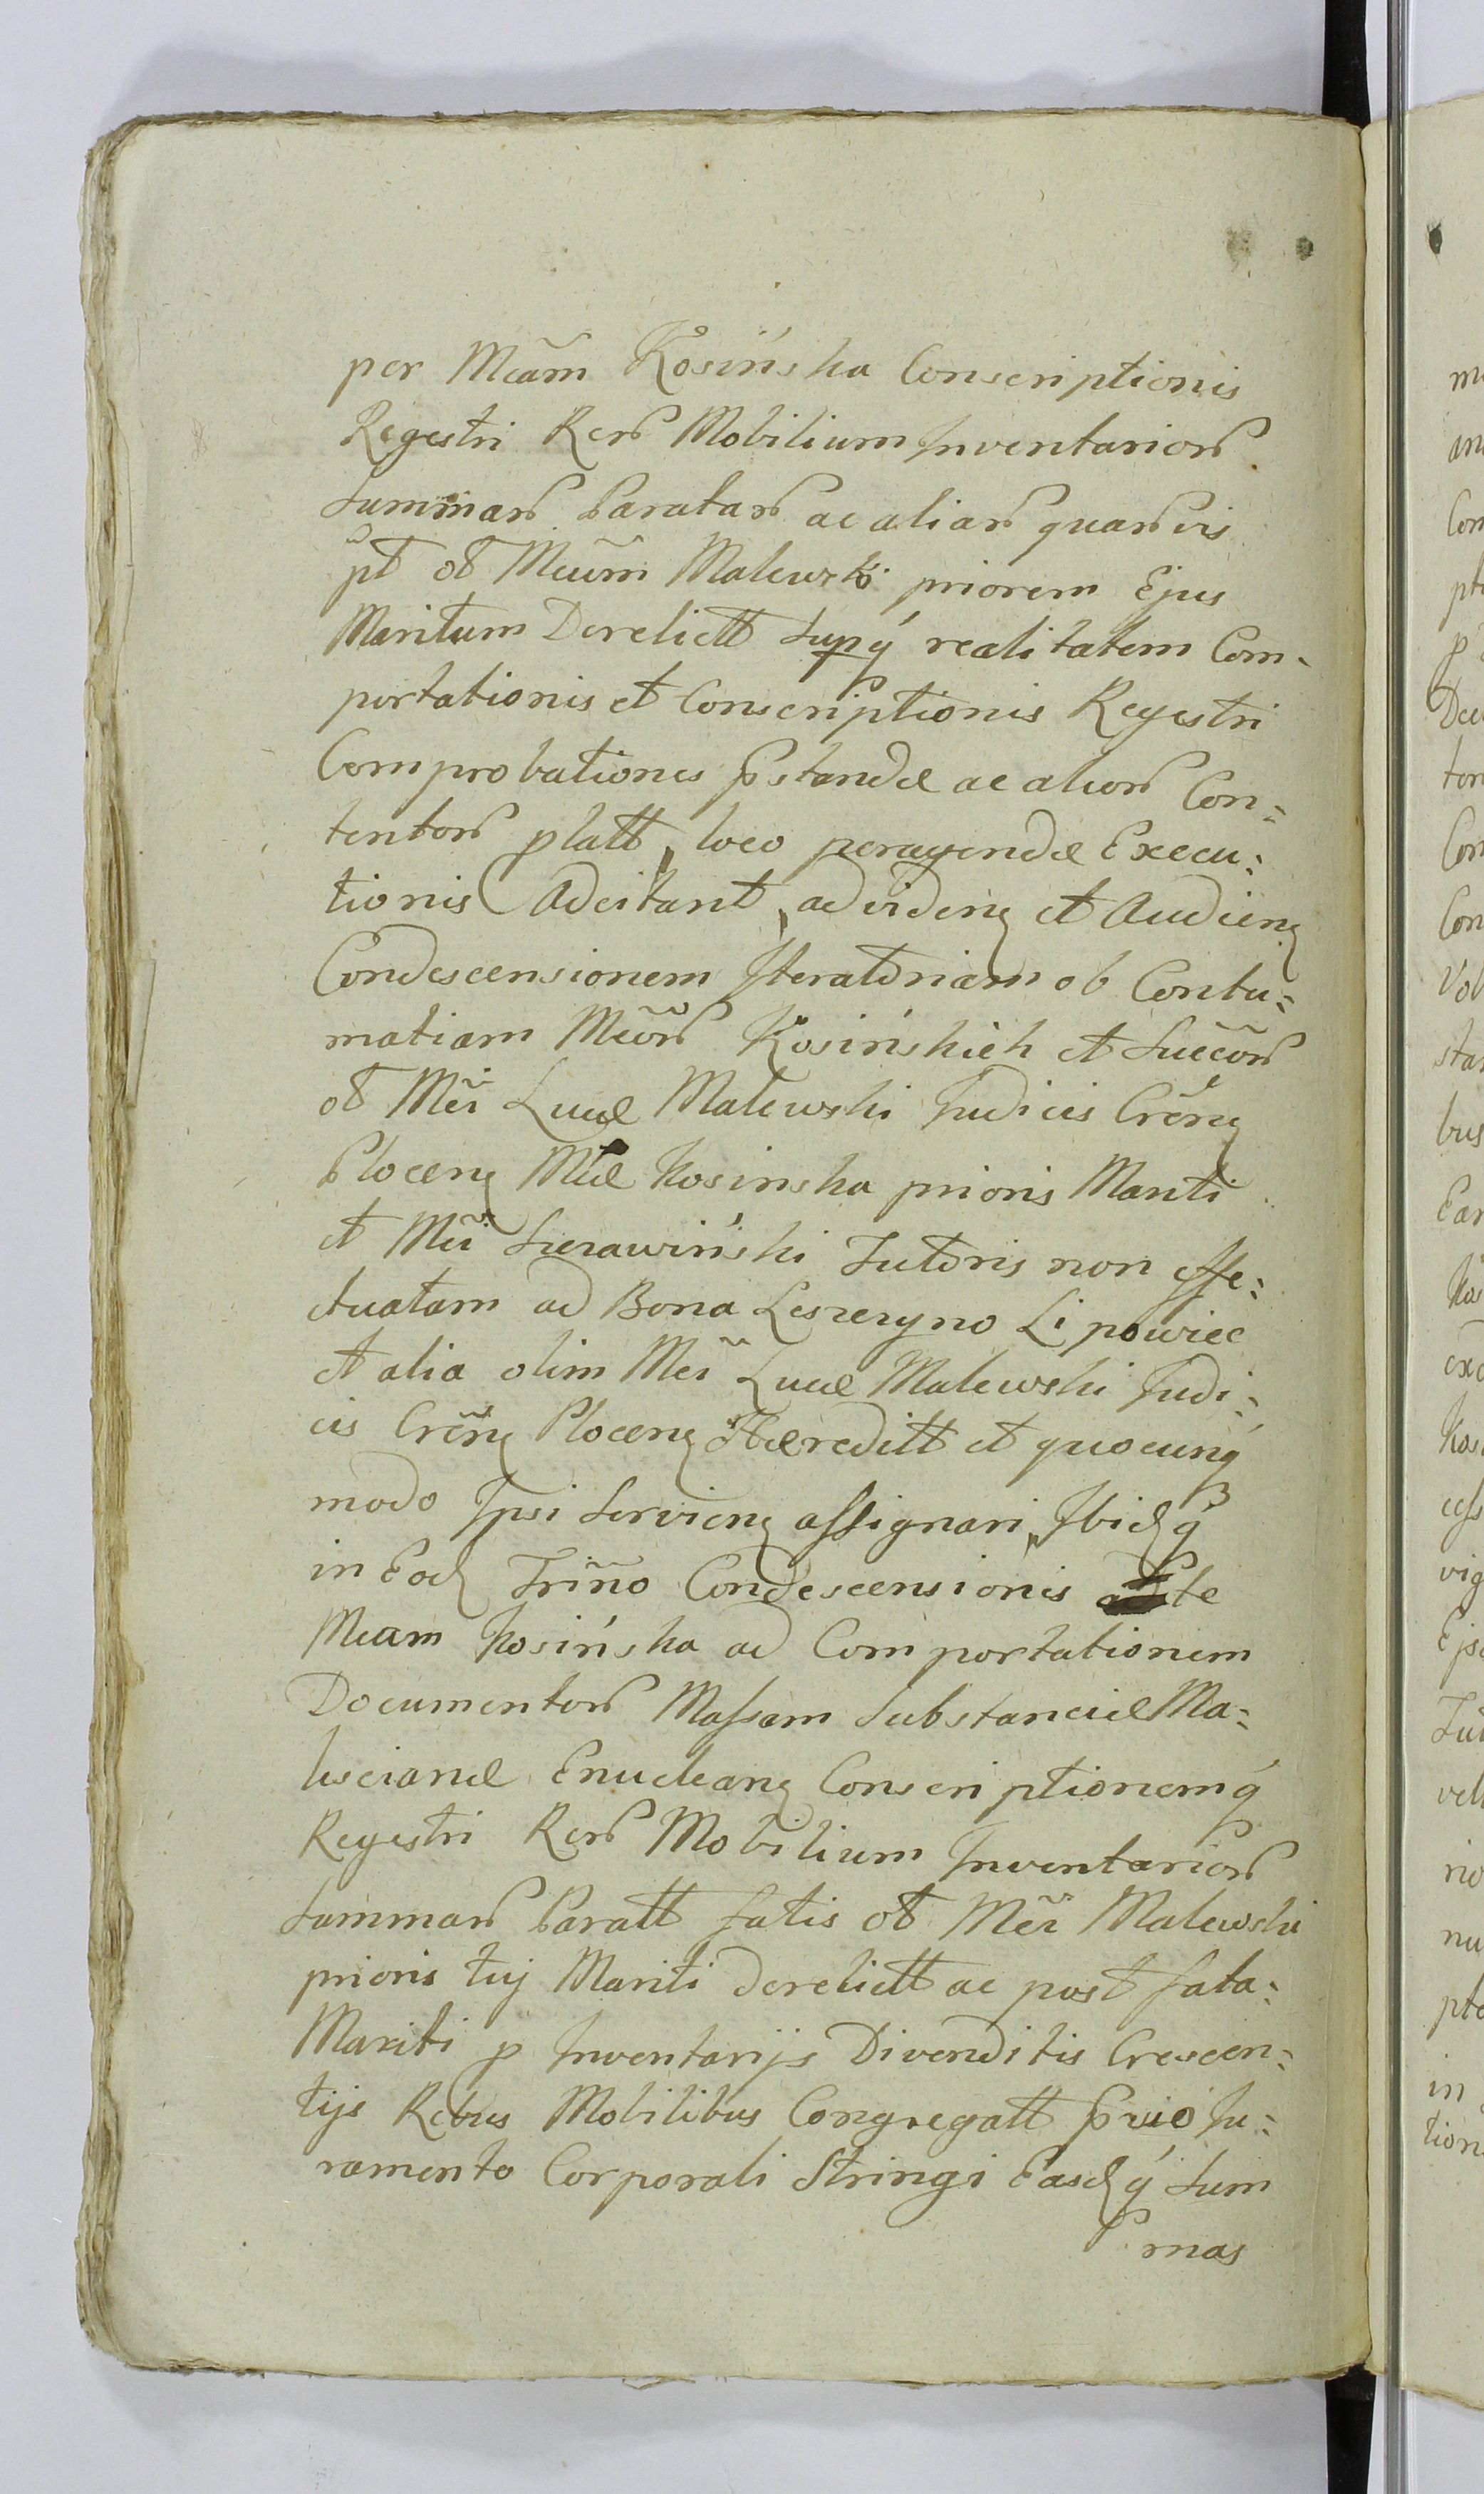 per Mcam̃ Kosińska Conscriptionis
Regestri Reru Mobilium Inventarioru
Summaru Parataru ac aliaru quaruvis
pt ol Mcum̃ Malewski priorem Ejus
Maritum Derelictt Supq́ realitatem Com-
portationis et Conscriptionis Regestri
Comprobationis pstandæ ac alioru Con=
tentoru platt, loco peragendæ Execu=
tionis Adcitant, ad videnɋ et Audienɋ
Condescensionem Iteratoriam ob Contu=
matiam Mcoru Kosińskich et Succoru
ol Mci Lucæ Malewski Judicis Crenɋ
Plocenɋ Mcæ Kosinska prioris Mariti
et Mci Sierawiński Tutoris non effe=
ctuatam ad Bona Leszczyno Lipowiec
et alia olim Mci Lucæ Malewski Judi=
cis Crenɋ Plocenɋ Hæreditt et quocunq́
modo Ipsi Servienɋ assignari, Ibidq́
in Eod Trino Condescensionis te
Mcam Kosińska ad Comportationem
Documentoru Massam Substanciæ Ma=
lescianæ Enucleanɋ Conscriptionemq́
Regestri Reru Mobilium Inventarioru
Summaru Paratt Satis ol Mci Malewski
prioris tuj Mariti derelictt ac post fata=
Mariti p Inventarijs Divenditis Crescen=
tijs Rebus Mobilibus Congregatt pvio Ju=
ramento Corporali Stringi Easdq́ Sum
mas